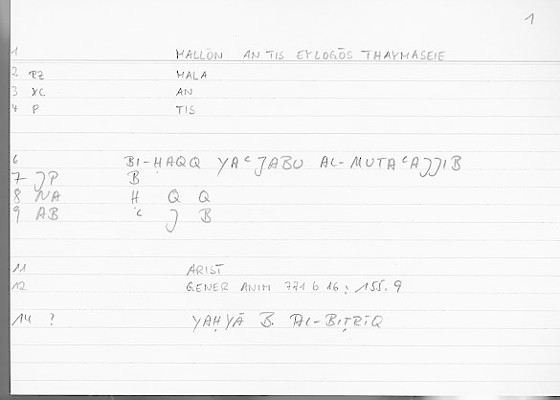 1
1 MALLŌN AN TIS EYLOGŌS THAYMASEIE
2 PZ MALA
3 XC AN
4 P TIS
6 BI-ḤAQQ YAʿJABU AL-MUTAʿAJJIB
7 JP B
8 NA Ḥ Q Q
9 AB ʿ J B
11 ARIST
12 GENER ANIM 771 b 16 : 155.9
14 ? YAḤYĀ B. AL-BIṬRĪQ